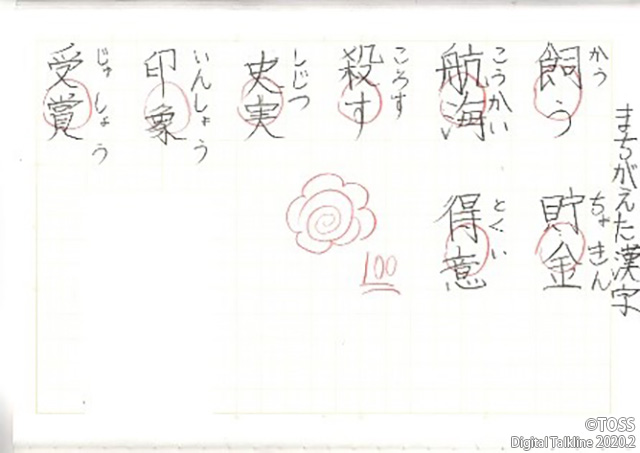 まちがえた漢字
かう
飼う
ちょきん
貯金
こうかい
航海
とくい
得意
ころす
殺す
しじつ
史実
いんしょう
印象
じゅしょう
受賞
100
©TOSS
Digital Talkline 2020.2